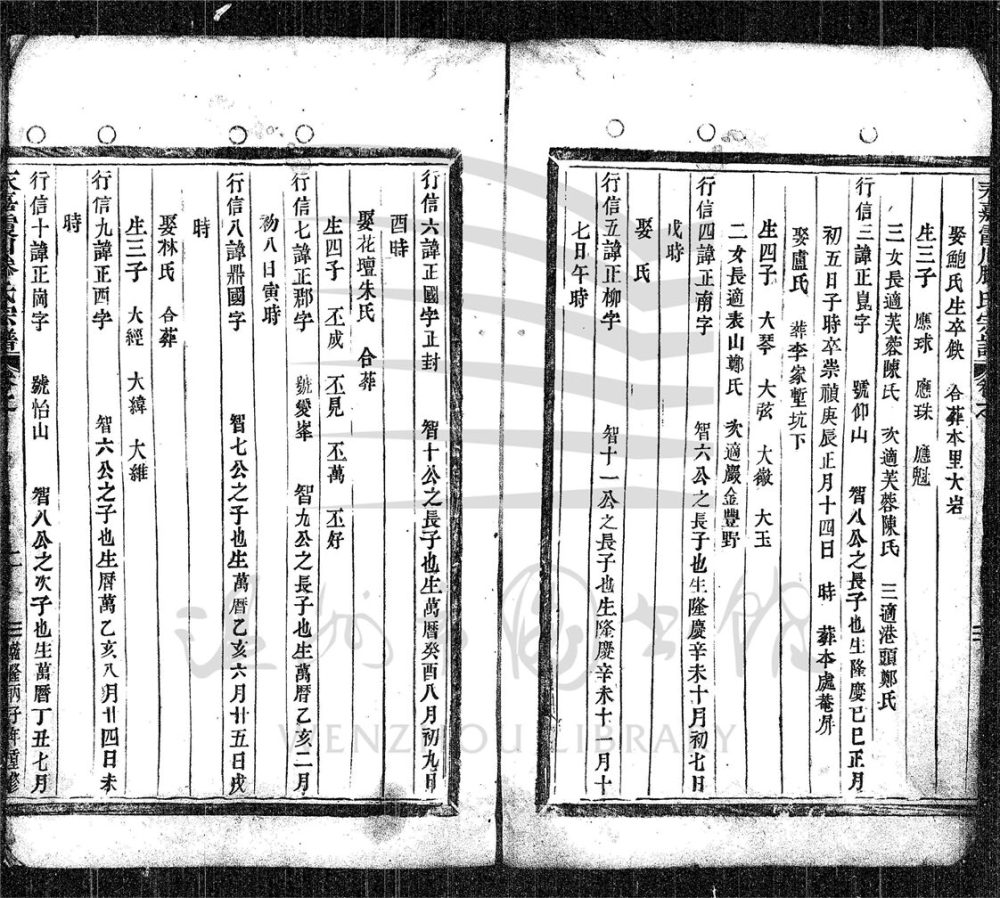 娶鮑氏生卒缺 合葬本里大岩
生三子 應球 應珠 應魁
三女長適芙蓉陳氏 次適芙蓉陳氏 三適港頭鄭氏
行信三諱正崑字 號仰山 智八公之長子也生隆慶己巳正月
初五日子時卒崇禎庚辰正月十四日 時 葬本處菴屏
娶盧氏 葬李家塹坑下
生四子 大琴 大弦 大徽 大玉
二女長適表山鄭氏 次適巖金豐野
行信四諱正南字 智六公之長子也生隆慶辛未十月初七日
戌時
娶 氏
行信五諱正柳字 智十一公之長子也生隆慶辛未十一月十
七日午時
行信六諱正國字正封 智十公之長子也生萬曆癸酉八月初九日
酉時
娶花壇朱氏 合葬
生四子 丕成 丕見 丕萬 丕好
行信七諱正郡字 號愛峯 智九公之長子也生萬曆乙亥二月
初八日寅時
行信八諱鼎國字 智七公之子也生萬曆乙亥六月廿五日戌
時
娶林氏 合葬
生三子 大經 大緯 大維
行信九諱正西字 智六公之子也生曆萬乙亥八月廿四日未
時
行信十諱正崗字 號怡山 智八公之次子也生萬曆丁丑七月
WENZHOU LIBRARY